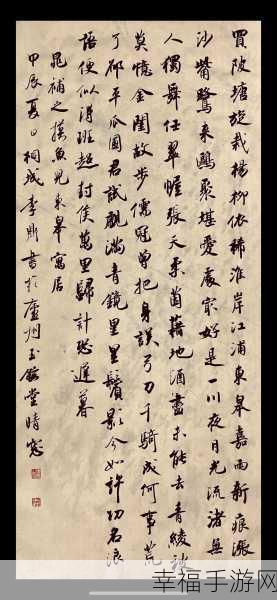 買陂塘旋栽楊柳依稀淮岸江浦東皋嘉雨新痕漲
沙觜鷺來鷗聚堪愛處最好是一川夜月光流渚無
人獨舞任翠幄張天柔茵藉地酒盡未能去青綾被
莫憶金閨故步儒冠曾把身誤弓刀千騎成何事荒
了邵平瓜圃君試覷滿青鏡星星鬢影今如許功名浪
語便似得班超封侯萬里歸計恐遲暮
晁補之摸魚兒東皋寓居
甲辰夏日桐城李書於廬州玉堂晴窗
幸福手游网